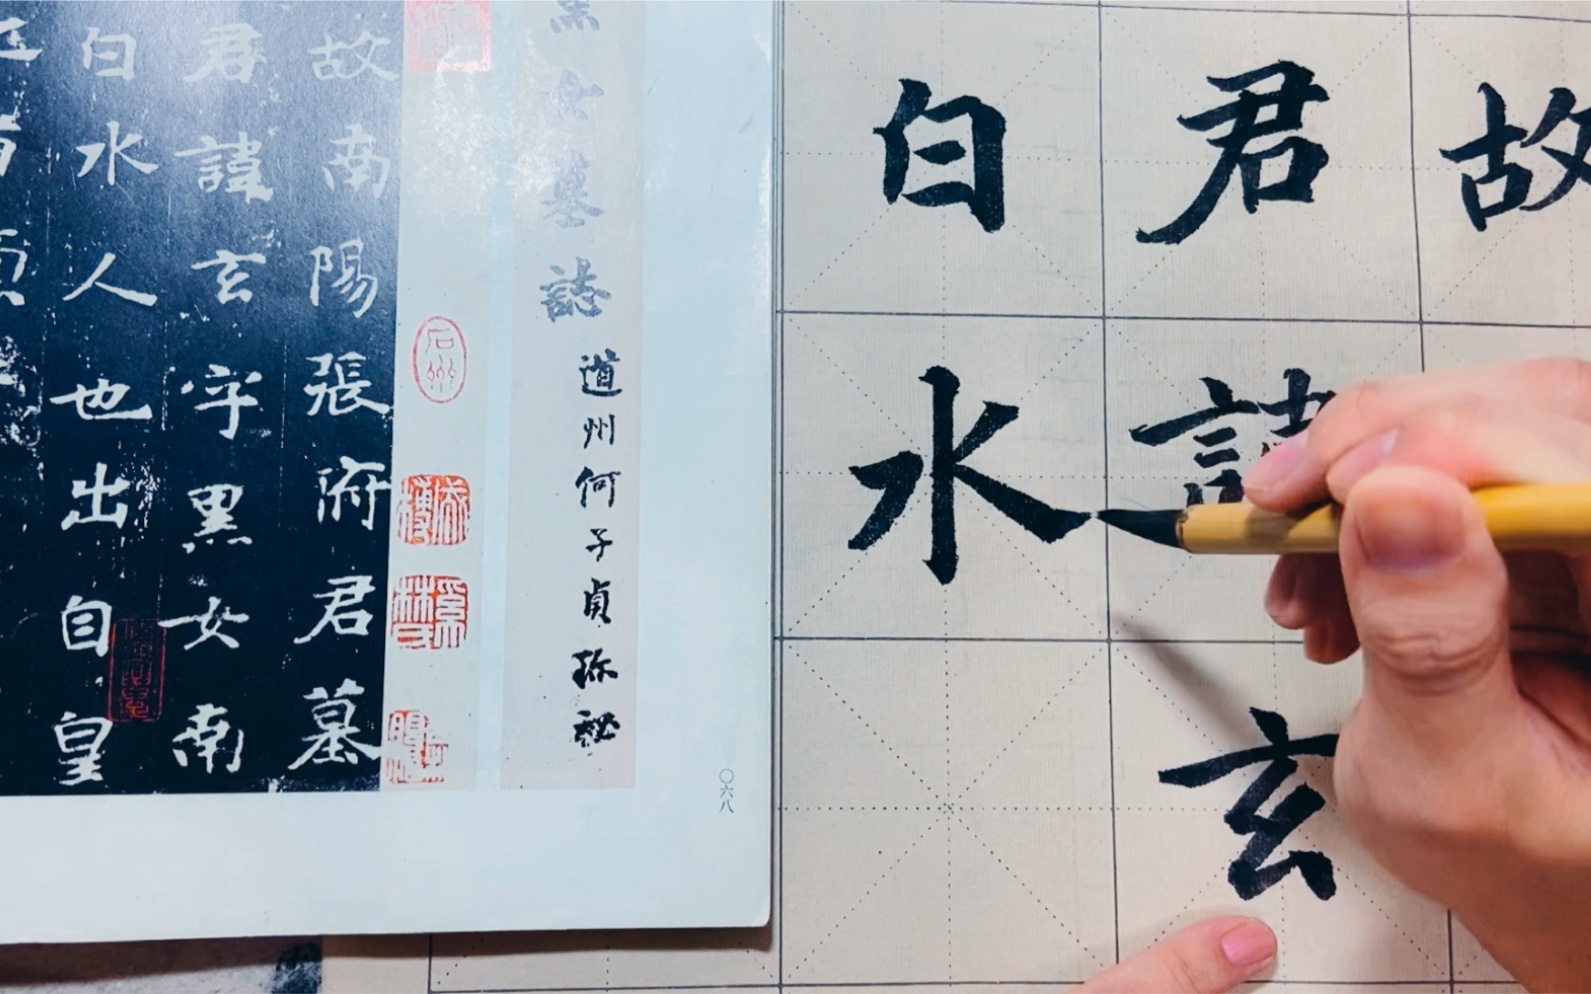 黑女墓誌
道州何子貞珎秘
故南陽張府君墓
君諱玄字黑女南
白水人也出自皇
〇六八
石州
故
君諱玄
白水